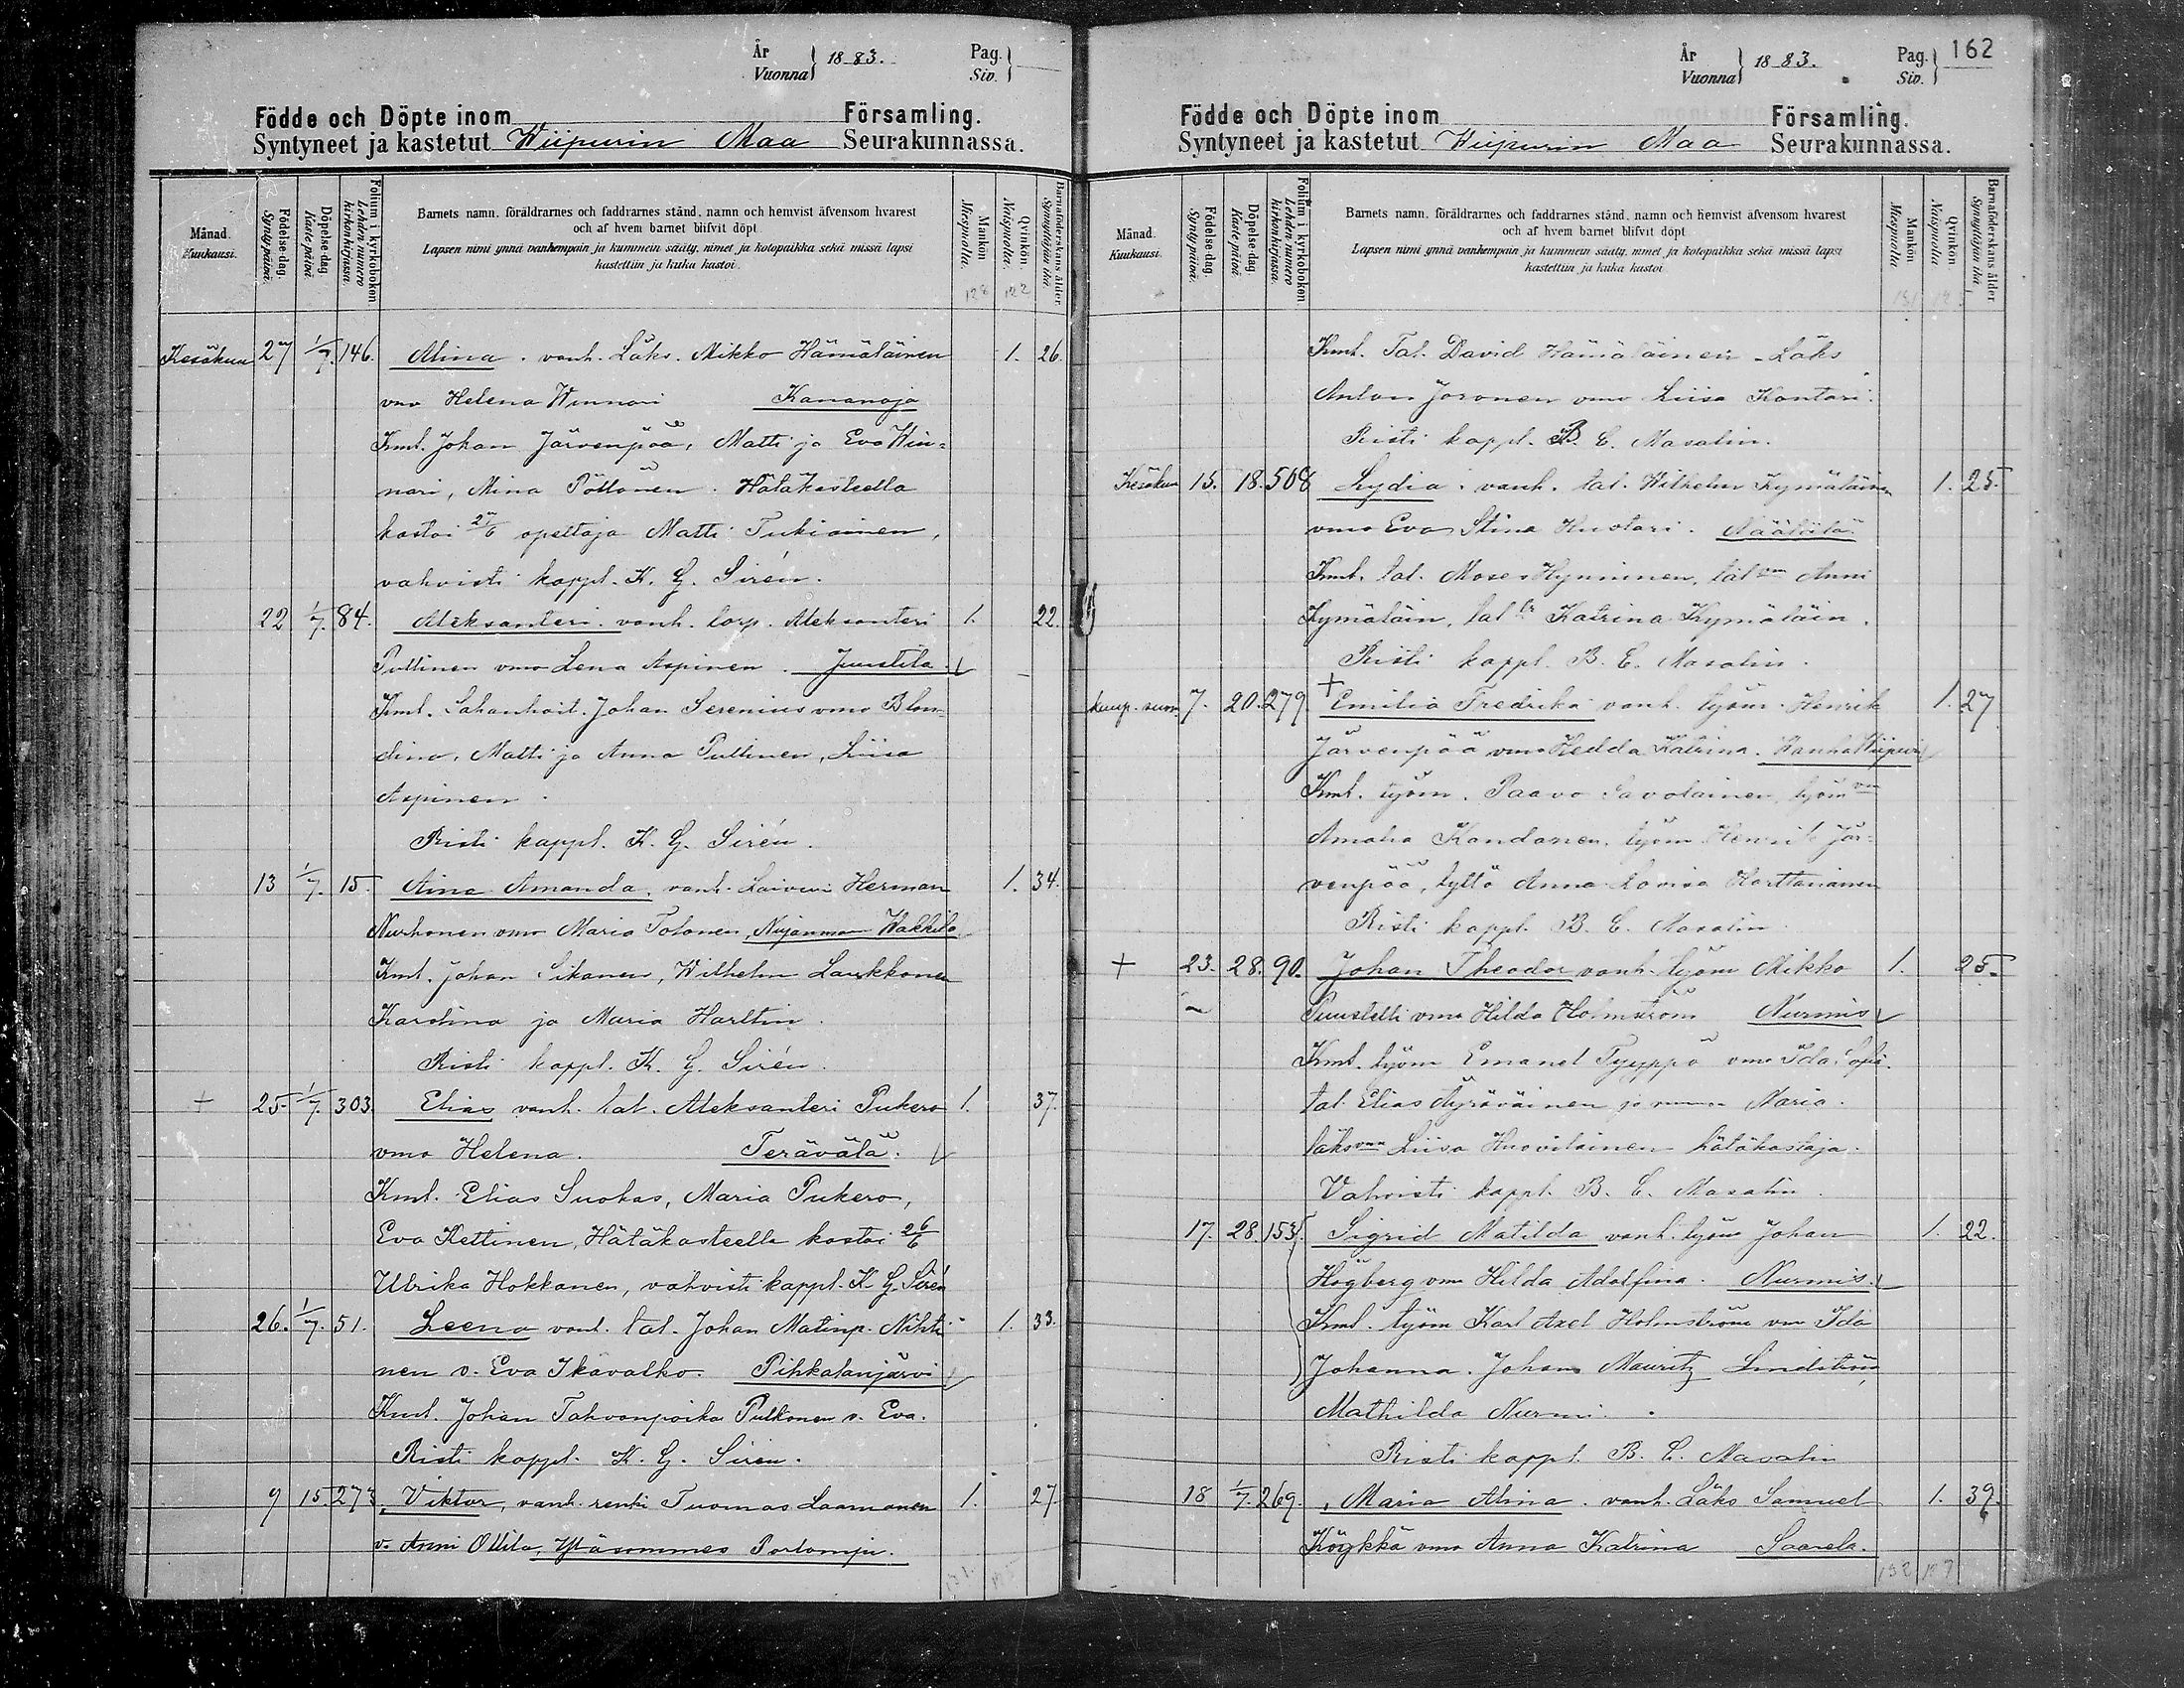 År
Vuonna } 1883.
Pag.
Siv. }
Födde och Döpte inom Församling.
Syntyneet ja kastetut Wiipurin Maa Seurakunnassa.
Månad.
Kuukausi.
Födelse-dag.
Syntypäivä.
Döpelse-dag.
Kastepäivä.
Folium i kyrkoboken.
Lehden numero kirkonkirjassa.
Barnets namn, föräldrarnes och faddrarnes stånd, namn och hemvist äfvensom hvarest
och af hvem barnet blifvit döpt.
Lapsen nimi ynnä vanhempain ja kummein sääty, nimet ja kotopaikka sekä missä lapsi
kastettiin ja kuka kastoi.
Mankön.
Miespuolia.
Qvinkön.
Naispuolia.
Barnaföderskans ålder.
Synnyttäjän ikä.
128 122
Kesäkuu 27 1/7. 146. Alina. vanh. Läks. Mikko Hämäläinen 1. 26.
vmo Helena Winnari Kananoja
Kmt. Johan Järvenpää, Matti ja Eva Win=
nari, Mina Pöllönen. Hätäkasteella
kastoi 27/6 opettaja Matti Tukiainen,
vahvisti kappl. K. G. Sirén.
22 1/7. 84. Aleksanteri. vanh. torp. Aleksanteri 1. 22.
Pullinen vmo Lena Aspinen. Juustila.
Kmt. Sahanhoit. Johan Serenius vmo Blon-
dina, Matti ja Anna Pullinen, Liisa
Aspinen.
Risti kappl. K. G. Sirén.
13 1/7. 15. Aina Amanda. vanh. Laivuri Herman 1. 34.
Nurhonen vmo Maria Tolonen, Nuijanmaa Wakkila
Kmt. Johan Sikanen, Wilhelm Laukkonen
Karolina ja Maria Harltin.
Risti kappl. K. G. Sirén.
+ 25. 1/7. 303. Elias vanh. tal. Aleksanteri Pukero 1. 37.
vmo Helena. Terävälä.
Kmt. Elias Suokas, Maria Pukero,
Eva Kettinen, Hätäkasteella kastoi 26/6
Ulrika Hokkanen, vahvisti kappl. K. G. Sirén
26. 1/7. 51. Leena vanh. tal. Johan Matinp. Nihti- 1. 33.
nen v. Eva Ikävalko. Pihkalanjärvi
Kmt. Johan Tahvonpoika Pulkonen v. Eva.
Risti kappl. K. G. Sirén.
9 15. 273. Viktor, vanh. renki Tuomas Laamanen 1. 27.
v. Anni Ollila, Yläsommes
131.
År
Vuonna } 1883.
Pag.
Siv. } 162
Födde och Döpte inom Församling.
Syntyneet ja kastetut Wiipurin Maa Seurakunnassa.
Månad.
Kuukausi.
Födelse-dag.
Syntypäivä.
Döpelse-dag.
Kastepäivä.
Folium i kyrkoboken.
Lehden numero kirkonkirjassa.
Barnets namn, föräldrarnes och faddrarnes stånd, namn och hemvist äfvensom hvarest
och af hvem barnet blifvit döpt.
Lapsen nimi ynnä vanhempain ja kummein sääty, nimet ja kotopaikka sekä missä lapsi
kastettiin ja kuka kastoi.
Mankön.
Miespuolia.
Qvinkön.
Naispuolia.
Barnaföderskans ålder.
Synnyttäjän ikä.
131
Kmt. Tal. David Hämäläinen - Läks
Anton Joronen vmo Liisa Kontari.
Risti kappl. B. E. Masalin.
Kesäkuu 15. 18. 508 Lydia. vanh. tal. Wilhelm Kymäläinen 1. 25.
vmo Eva Stina Kustari. Näätälä
Kmt. tal. Moses Hynninen, tal vm Anni
Kymäläin, tal tr Katrina Kymäläin.
Risti kappl. B. E. Masalin.
kaup. 7. 20. 279 + Emilia Fredrika vanh. työm. Henrik 1. 27
Järvenpää vmo Hedda Katrina. Wanha Wiipuri
Kmt. työm. Paavo Savolainen, työm vm
Amalia Kandanen, työm Henrik Jär-
venpää, tyttö Anna Lovisa Harttanainen
Risti kappl. B. E. Masalin
+ 23. 28. 90. Johan Theodor vanh. työm Mikko 1. 25.
Puustelli vmo Hilda Holmström Nurmis
Kmt. työm Emanel Tyyppö vmo Ida Sofi.
tal. Elias Äyräväinen ja Maria.
läksvm Liisa Huovilainen hätäkastaja.
Vahvisti kappl. B. E. Masalin.
17. 28. 153. Sigrid Matilda vanh. työm Johan 1. 22.
Högberg vm Hilda Adolfina. Nurmis.
Kmt. työm Karl Axel Holmström vm Ida
Johanna. Johan Mauritz Lindström,
Mathilda Nurmi.
Risti kappl. B. E. Masalin
18 1/7. 269. Maria Alina. vanh. Läks Samuel 1. 39.
Kögkkä vmo Anna Katrina Saarela.
132 127